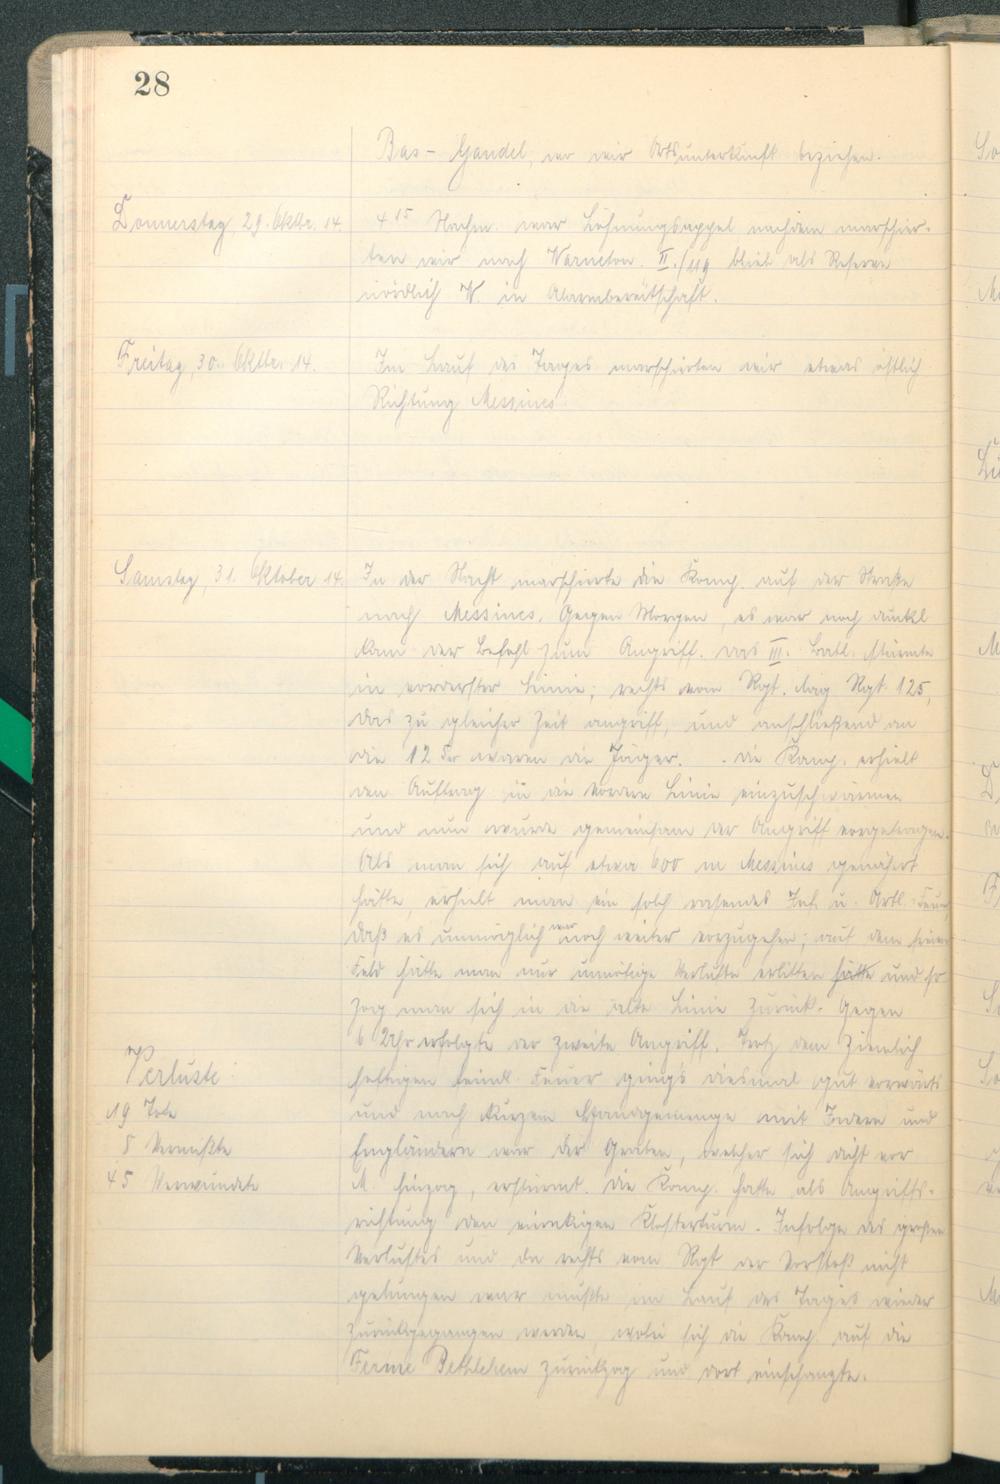 28
Bas-Gandel, wo wir Ortsunterkunft beziehen.
Donnerstag, 29. Oktbr. 14.
4 15 Nachm. war Löhnungsappel nachdem marschier-
ten wir nach Warneton. II./119 blieb als Reserve
nördlich W. in Alarmbereitschaft.
Freitag, 30. Oktbr. 14.
Im Lauf des Tages marschierten wir etwas östlich
Richtung Messines.
Samstag, 31. Oktober 14.
In der Nacht marschierte die Komp. auf der Straße
nach Messines. Gegen Morgen, es war noch dunkl
kam der Befehl zum Angriff. das III. Batl. stürmte
in vorderster Linie; rechts vom Rgt. lag Rgt. 125,
das zu gleicher Zeit angriff, und anschließend an
die 125er waren die Jäger. die Komp. erhielt
den Auftrag in die vordere Linie einzuschwärmen
und nun wurde gemeinsam der Angriff vorgetragen.
Als man sich auf etwa 600 m Messines genähert
hatte, erhielt man ein solch rasendes Inf. u. Artl. Feuer,
daß es unmöglich war noch weiter vorzugehen; auf dem freien
Feld hätte man nur unnötige Verluste erlitten hätte und so
zog man sich in die alte Linie zurück. Gegen
6 Uhr erfolgte der zweite Angriff. Trotz dem ziemlich
heftigen feindl. Feuer ging's diesmal gut vorwärts
und nach kurzem Handgemenge mit Indern und
Engländern war der Graben, welcher sich dicht vor
M. hinzog, erstürmt. Die Komp. hatte als Angriffs-
richtung den viereckigen Klosterturm. Infolge des großen
Verlustes und da rechts vom Rgt. der Vorstoß nicht
gelungen war mußte im Lauf des Tages wieder
zurückgegangen werden, wobei sich die Komp. auf die
Ferme Bethlehem zurückzog und dort einschanzte.
Verluste:
19 Tote
8 Vermißte
45 Verwundete